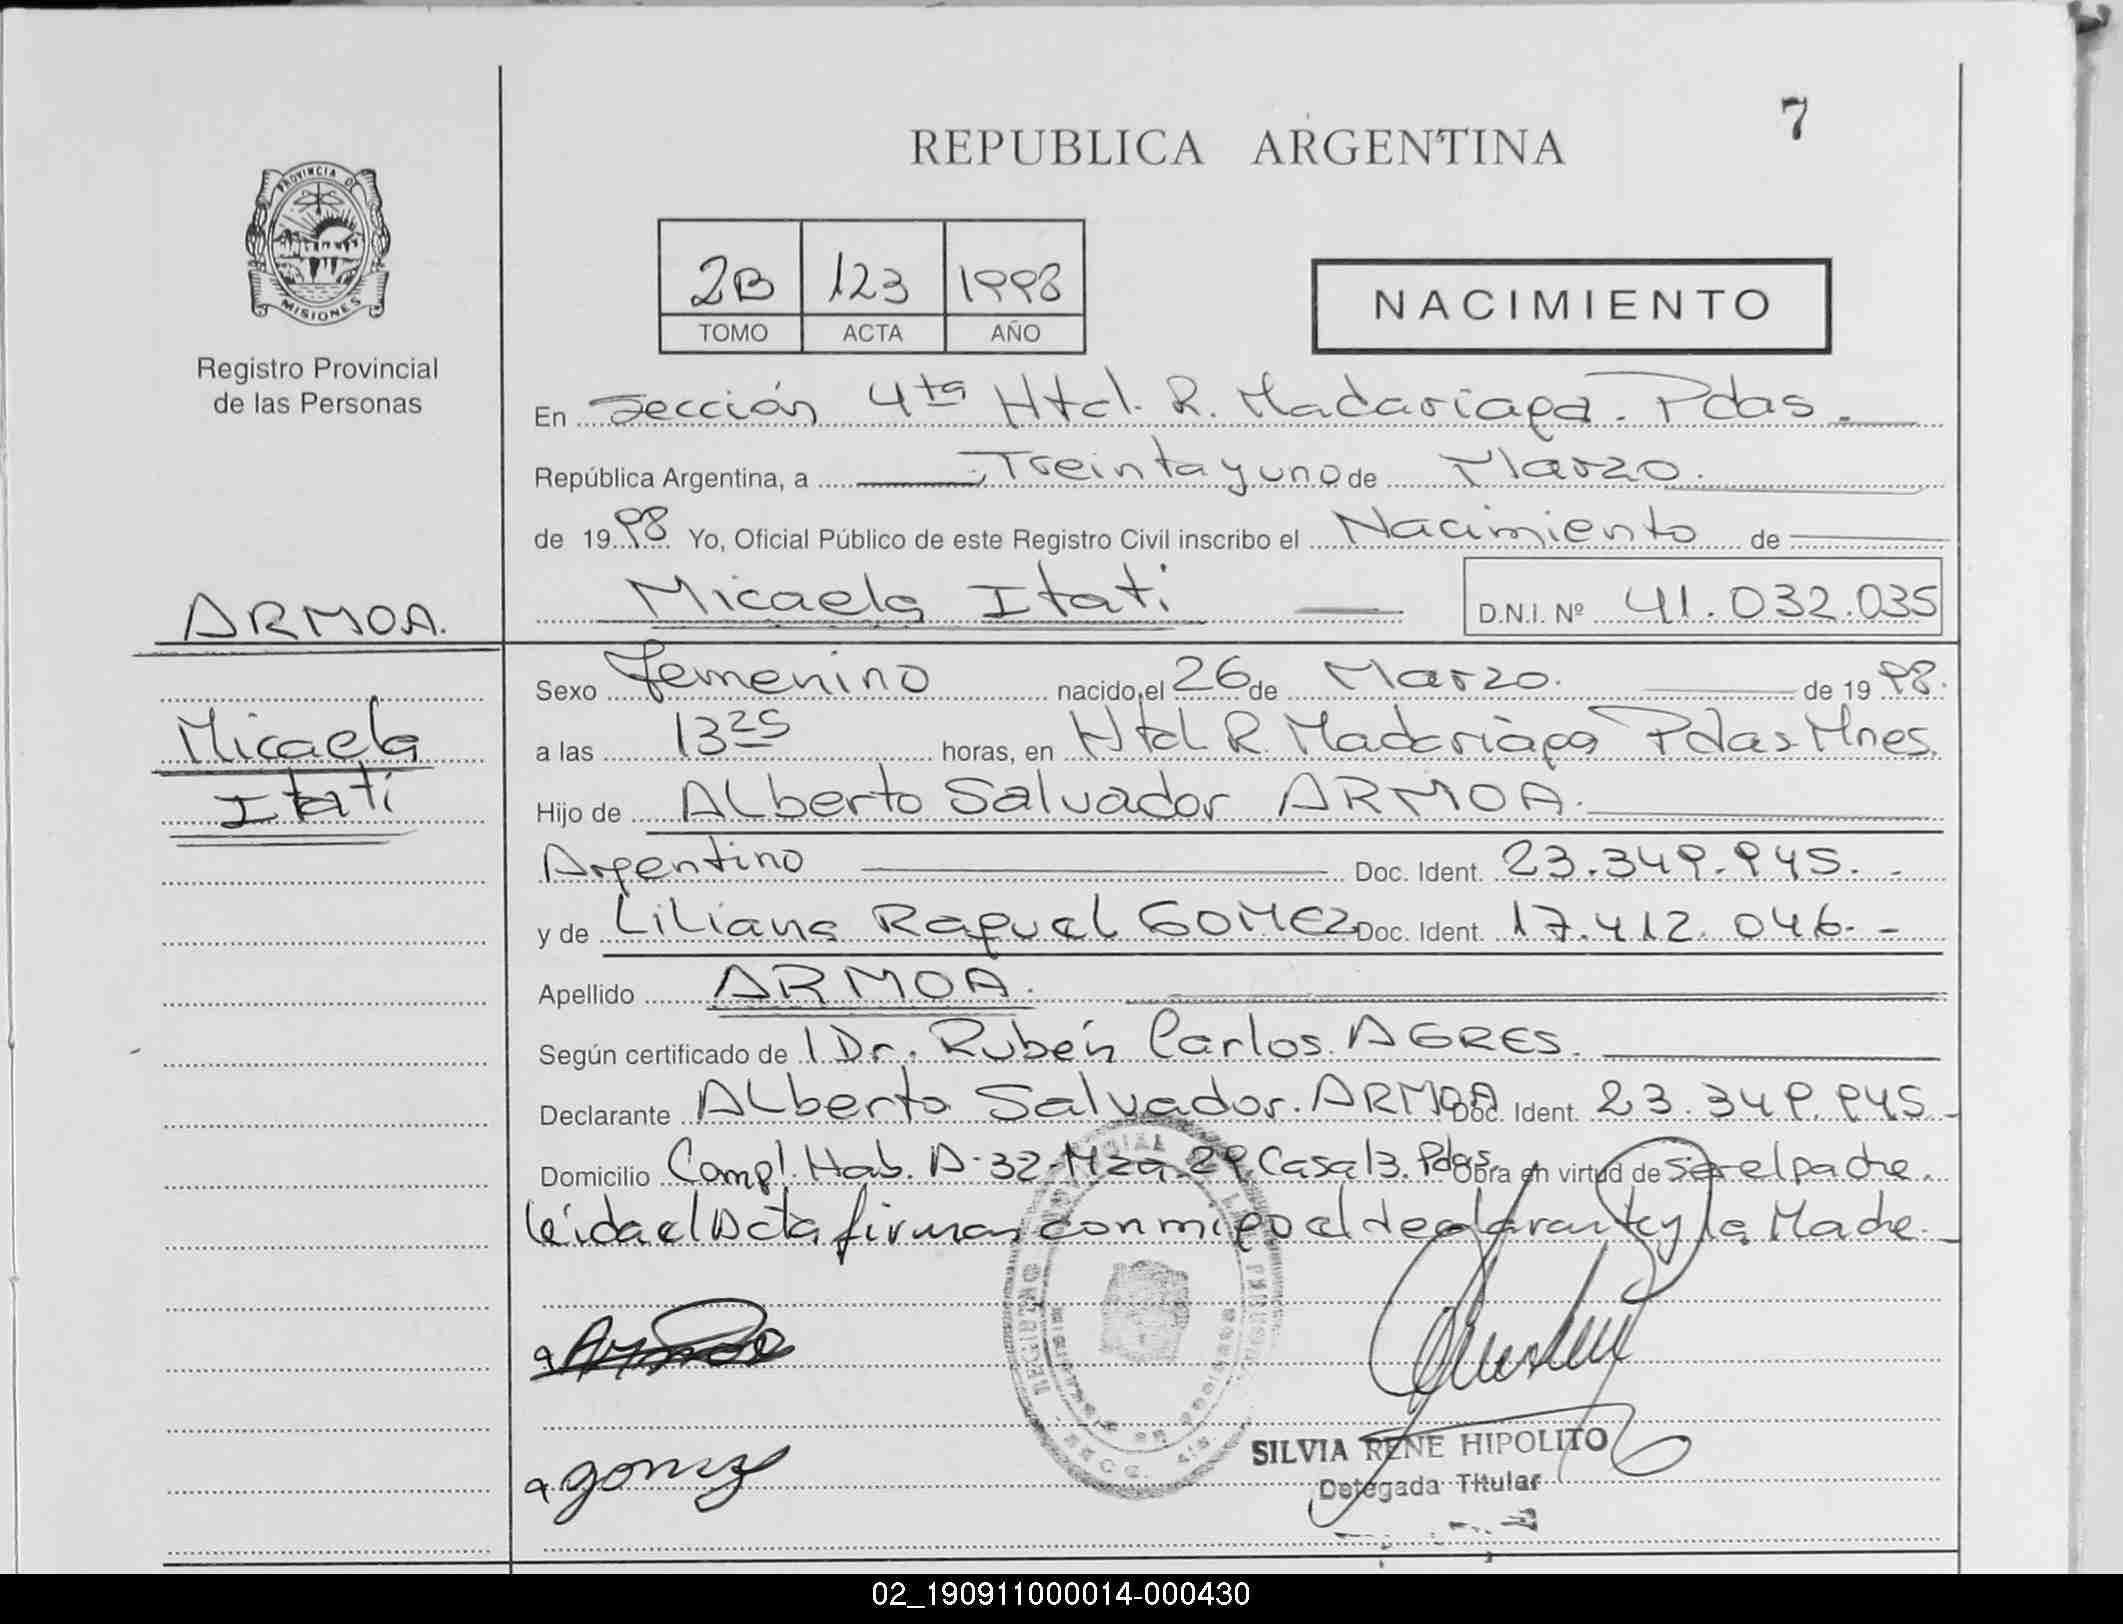 7
REPUBLICA ARGENTINA
PROVINCIA DE
MISIONES
Registro Provincial
de las Personas
2B 123 1998
TOMO ACTA AÑO
NACIMIENTO
En Sección 4ta Htal. R. Madariaga. Pdas.
República Argentina, a Treinta y uno de Marzo.
de 1998 Yo, Oficial Público de este Registro Civil inscribo el Nacimiento de
Micaela Itati D.N.I. Nº 41.032.035
ARMOA.
Micaela
Itati
Sexo Femenino nacido el 26 de Marzo. de 1998.
a las 13 25 horas, en Htal. R. Madariaga Pdas-Mnes.
Hijo de Alberto Salvador ARMOA.
Argentino Doc. Ident. 23.349.945.-
y de Liliana Raquel GOMEZ Doc. Ident. 17.412.046.-
Apellido ARMOA.
Según certificado de Dr. Rubén Carlos AGRES.
Declarante Alberto Salvador. ARMOA Doc. Ident. 23.349.945-
Domicilio Compl. Hab. A-32-Mza. 29 Casa 13. Pdas. Obra en virtud de ser el padre.
leida el Acta firman conmigo el declarante y la Madre.
gomez
SILVIA RENE HIPOLITO
Delegada Titular
02_190911000014-000430